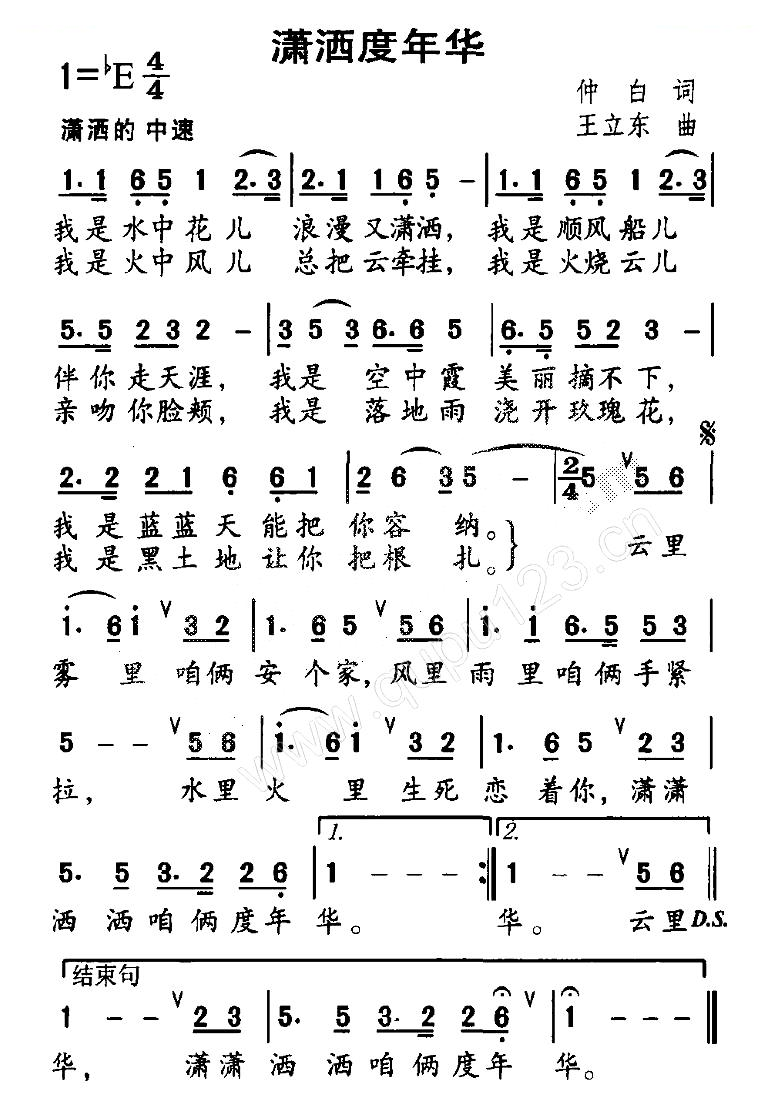 潇洒度年华
1=♭E 4/4
仲白词
潇洒的 中速
王立东 曲
1. 1 6 5 1 2. 3 | 2. 1 1 6 5. - | 1. 1 6 5 1 2. 3 |
我是水中花儿 浪漫又潇洒， 我是顺风船儿
我是火中风儿 总把云牵挂， 我是火烧云儿
5. 5 2 3 2 - | 3 5 3 6. 6 5 | 6. 5 5 2 3 - |
伴你走天涯， 我是 空中霞 美丽摘不下，
亲吻你脸颊， 我是 落地雨 浇开玫瑰花，
2. 2 2 1 6 6 1 | 2 6 3 5 - | 2/4 5 ∨ 5 6 |
我是蓝蓝天能把 你容 纳。
我是黑土地让你 把根 扎。} 云里
1. 6 1 ∨ 3 2 | 1. 6 5 ∨ 5 6 | 1. 1 6. 5 5 3 |
雾 里 咱俩 安个家，风里雨里咱俩手紧
5 - - ∨ 5 6 | 1. 6 1 ∨ 3 2 | 1. 6 5 ∨ 2 3 |
拉， 水里火 里生死恋着你，潇潇
1. 2.
5. 5 3. 2 2 6 | 1 - - - :| 1 - - ∨ 5 6 ||
洒 洒咱俩度年 华。 华。 云里 D.S.
结束句
1 - - ∨ 2 3 | 5. 5 3. 2 2 6 ∨ | 1 - - - ||
华， 潇潇 洒 洒咱俩度年 华。
www.qupu123.cn